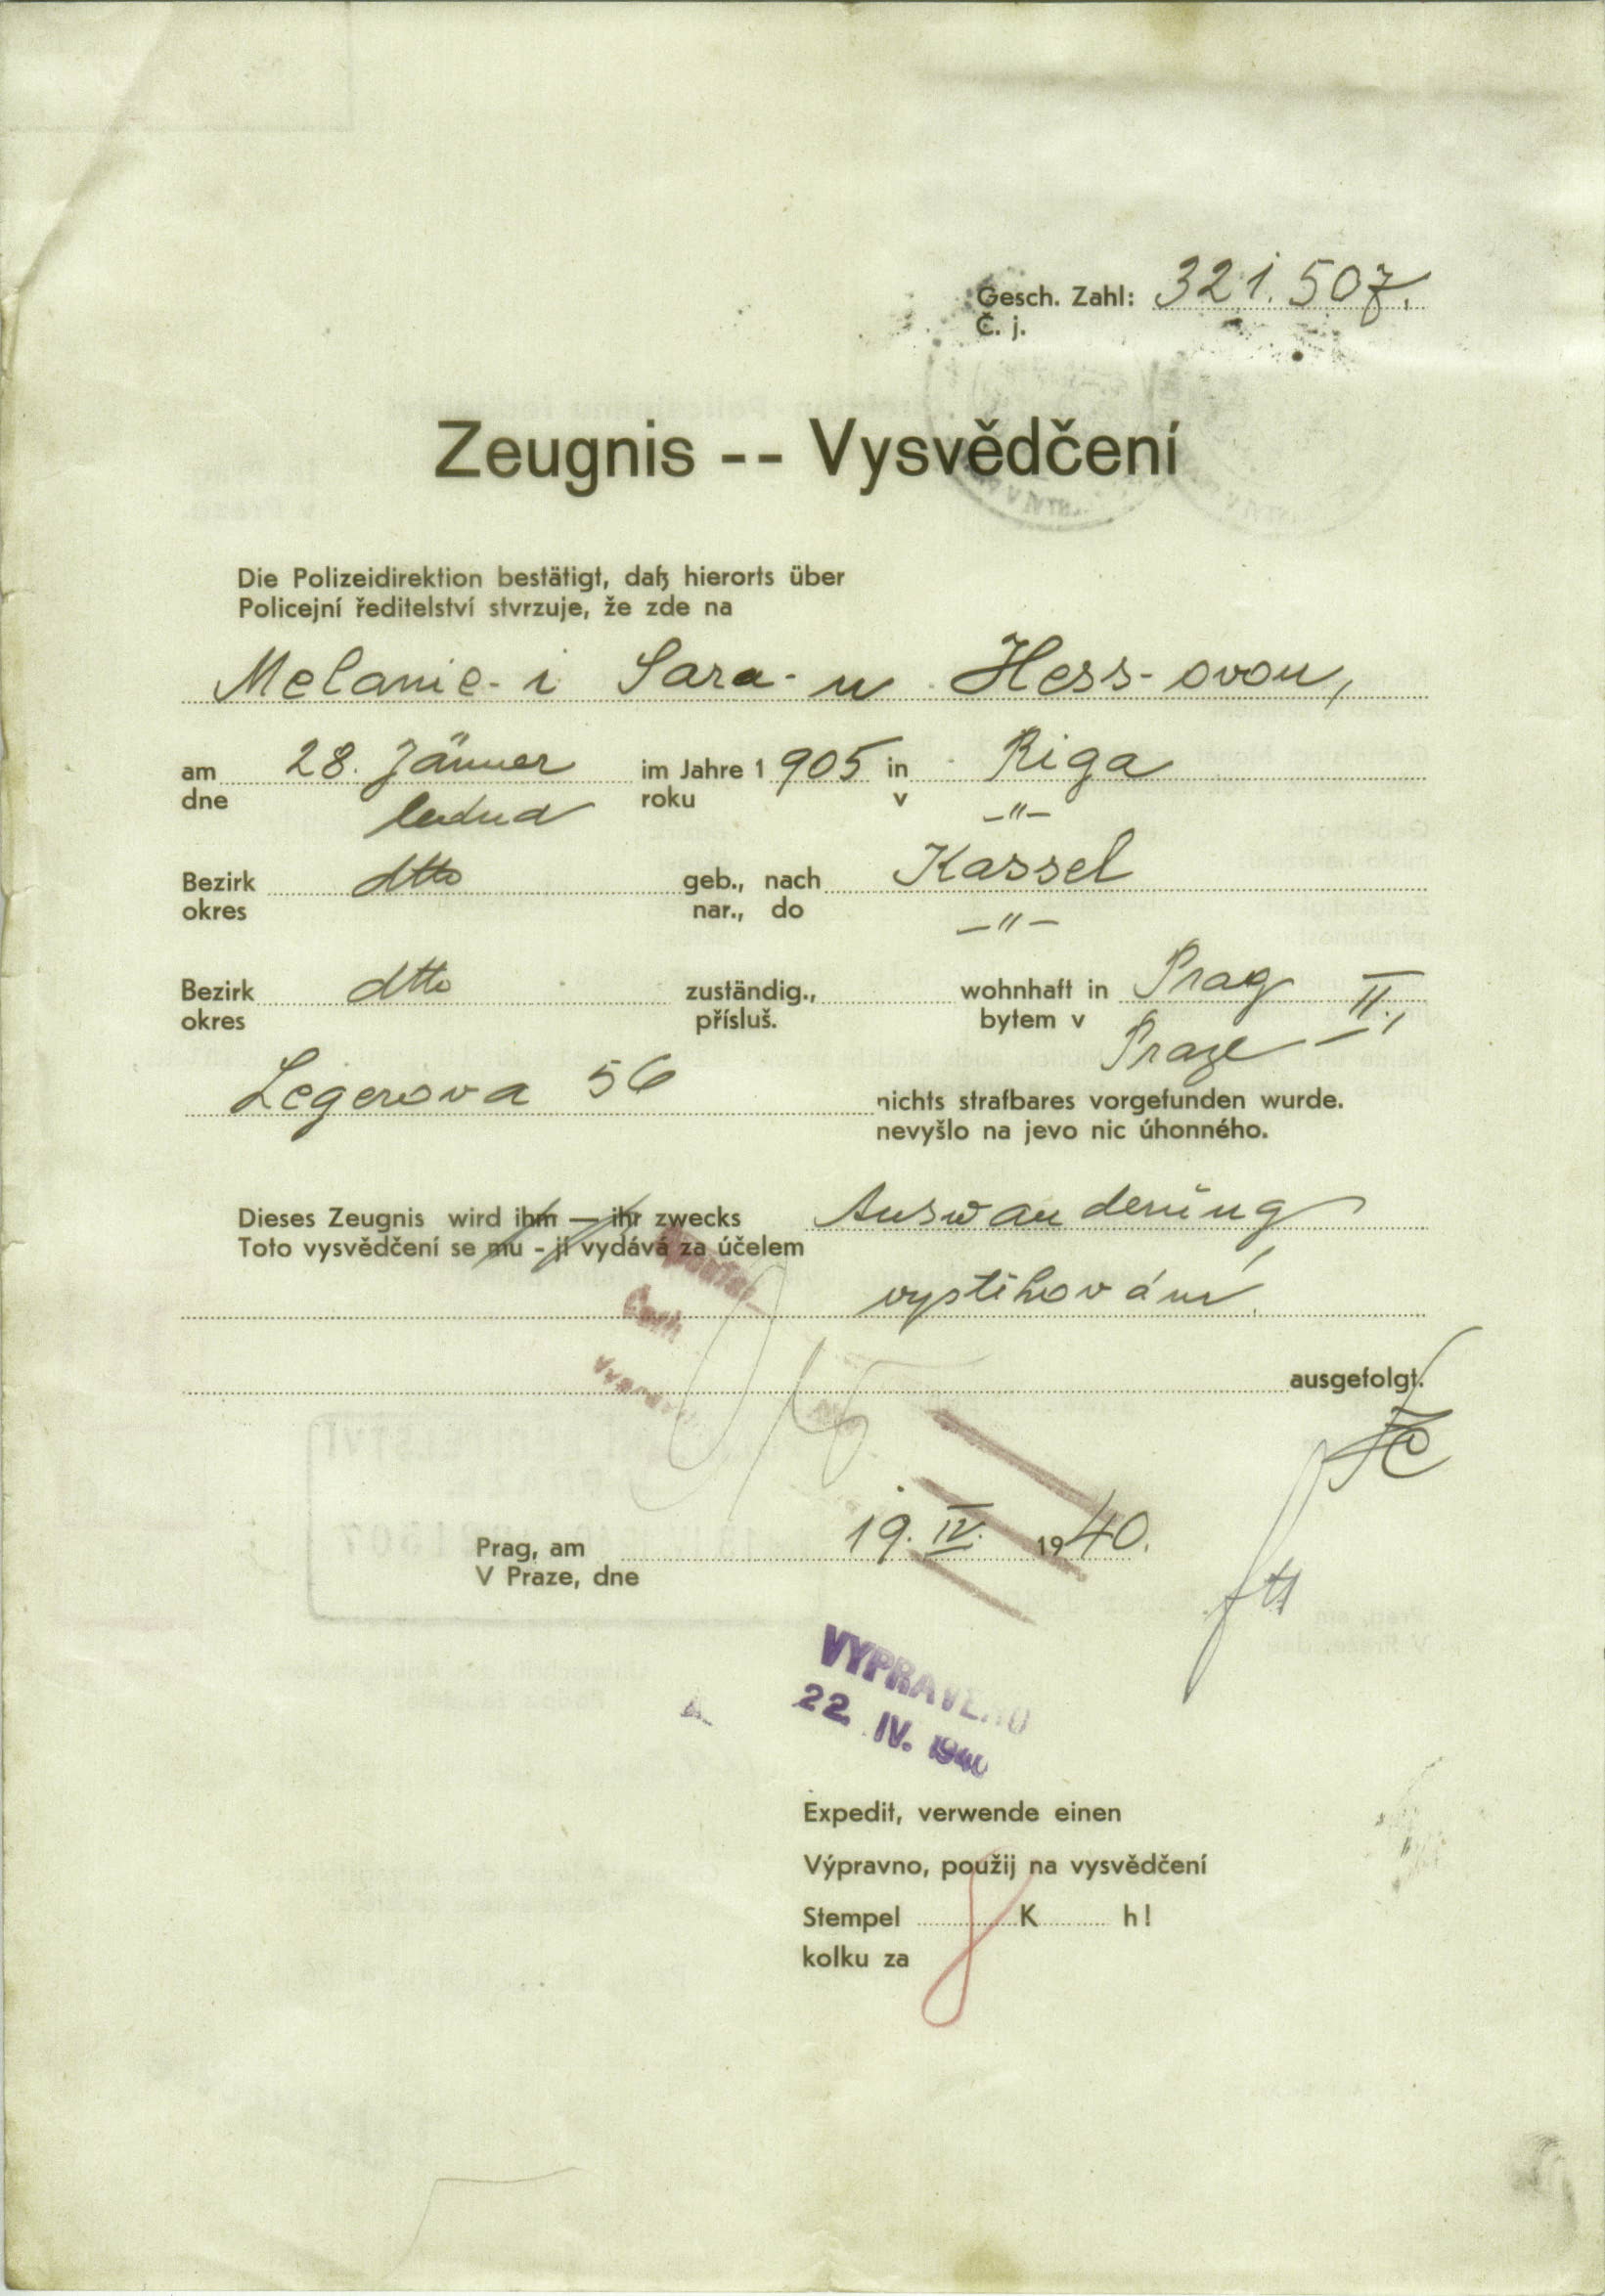 Gesch. Zahl: 321.507.
Č. j.
Zeugnis -- Vysvědčení
Die Polizeidirektion bestätigt, daß hierorts über
Policejní ředitelství stvrzuje, že zde na
Melanie - i Sara - u Hess - ovou,
am 28. Jänner im Jahre 1 905 in Riga
dne ledna roku v -"-
Bezirk dtto geb., nach Kassel
okres nar., do -"-
Bezirk dtto zuständig., wohnhaft in Prag II.,
okres přísluš. bytem v Praze -
Legerova 56 nichts strafbares vorgefunden wurde.
nevyšlo na jevo nic úhonného.
Dieses Zeugnis wird ihm — ihr zwecks Auswanderung
Toto vysvědčení se mu - jí vydává za účelem
vystěhování
ausgefolgt.
Prag, am 19. IV. 1940.
V Praze, dne
VYPRAVENO
22. IV. 1940
Expedit, verwende einen
Výpravno, použij na vysvědčení
Stempel 8 K h!
kolku za